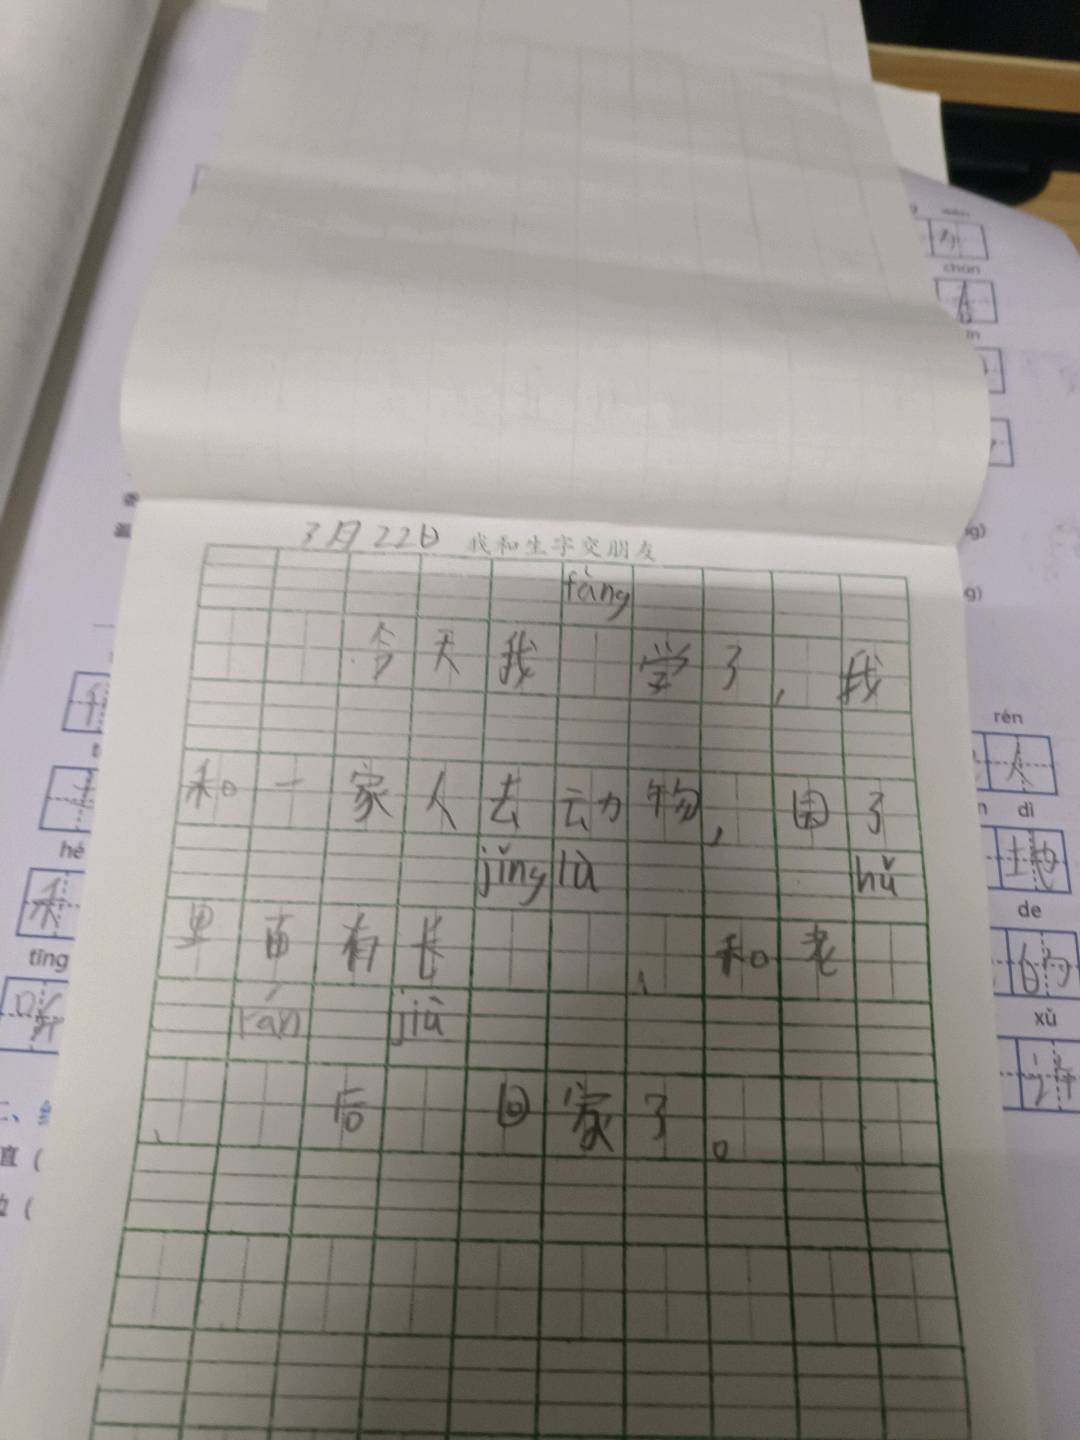 3月22日 我和生字交朋友
fàng
今天我 学了,我
和一家人去动物,园了
jǐng lù hǔ
里面有长 、和老
rán jiù
、 后 回家了。
chūn
rén
人
dì
地
hé
禾
de
的
tīng
听
xǔ
许
直(